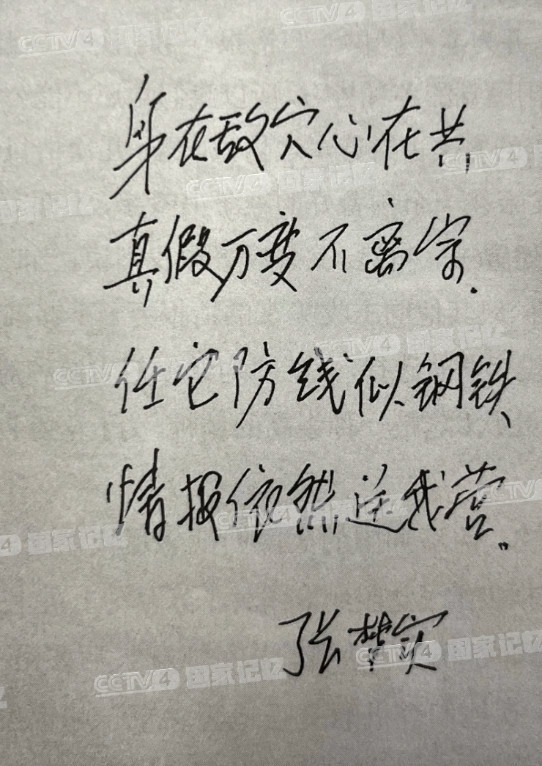 身在敌穴心在共
真假万变不离宗.
任它防线似钢铁、
情报依然送我营。
张楚实
CCTV4 国家记忆